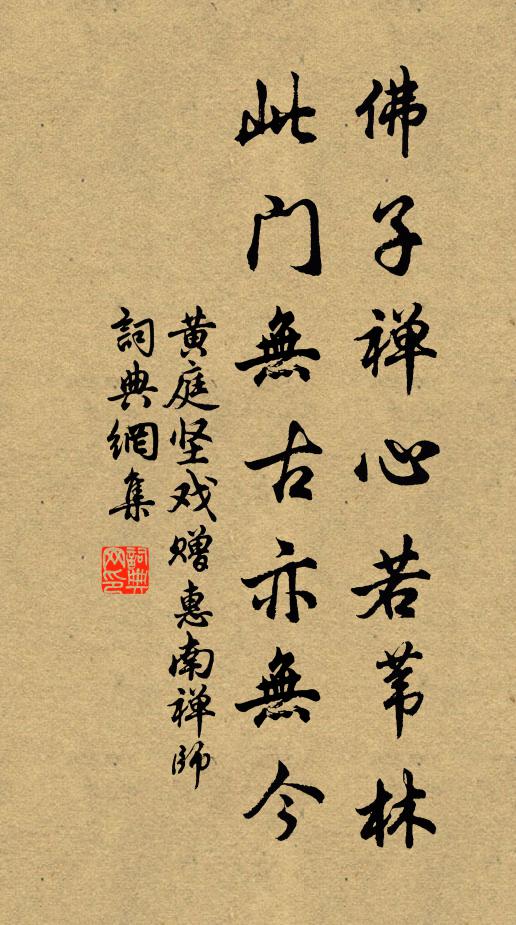 佛子禅心若苇林
此门無古亦無今
黄庭坚戏赠惠南禅师
詞典網集
詞典网印